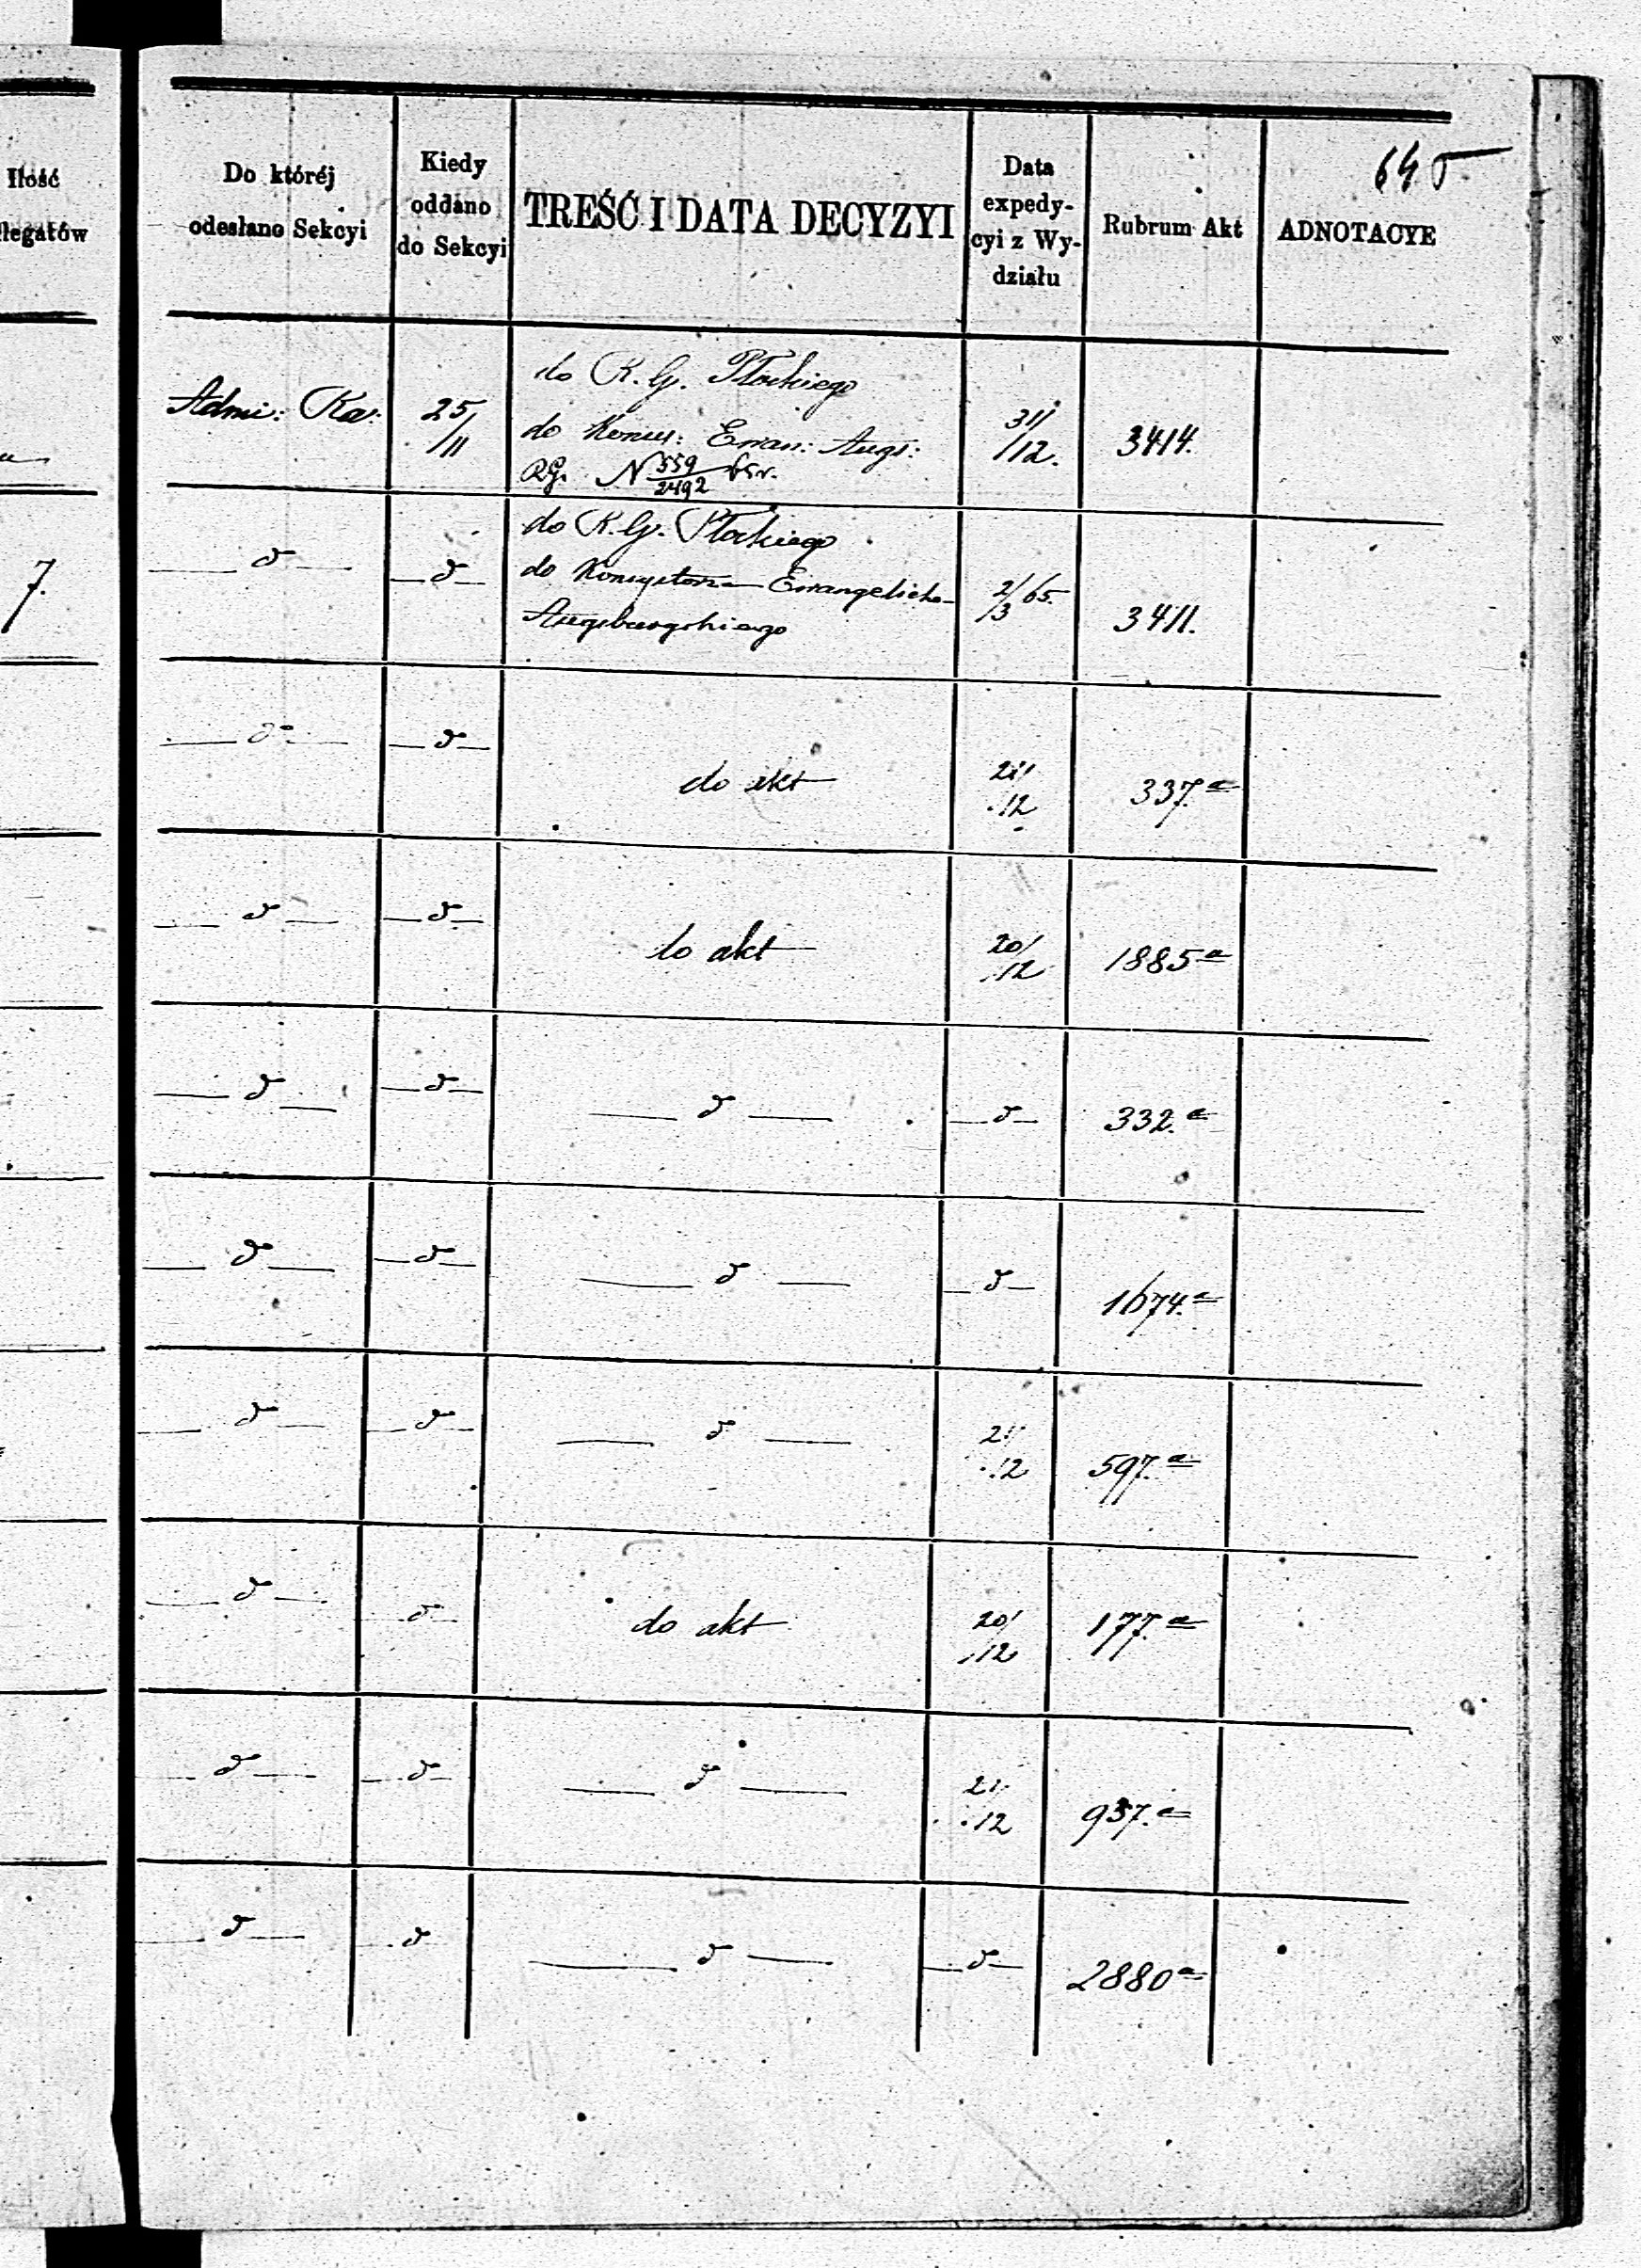 645
Ilość
llegatów
Do któréj
odesłano Sekcyi
Kiedy
oddano
do Sekcyi
TREŚĆ I DATA DECYZYI
Data
expedy-
cyi z Wy-
działu
Rubrum Akt
ADNOTACYE
Admi: Ka:
25/11
do R. G. Płockiego
do Konsu: Ewan: Augs:
RG. N 559/2492 65 r.
31/12.
3414.
7.
— d° —
— d° —
do R. G. Płockiego
do Konsystorza Ewangelicko-
Augsburgskiego
2/3 65.
3411.
— d° —
— d° —
do akt
21/12
337.a
— d° —
— d° —
do akt
20/12
1885 a
— d° —
— d° —
— d° —
— d° —
332.a
— d° —
— d° —
— d° —
— d° —
1674.a
— d° —
— d° —
— d° —
21/12
597.a
— d° —
— d° —
do akt
20/12
177.a
— d° —
— d° —
— d° —
21/12
937.a
— d° —
— d° —
— d° —
— d° —
2880 a